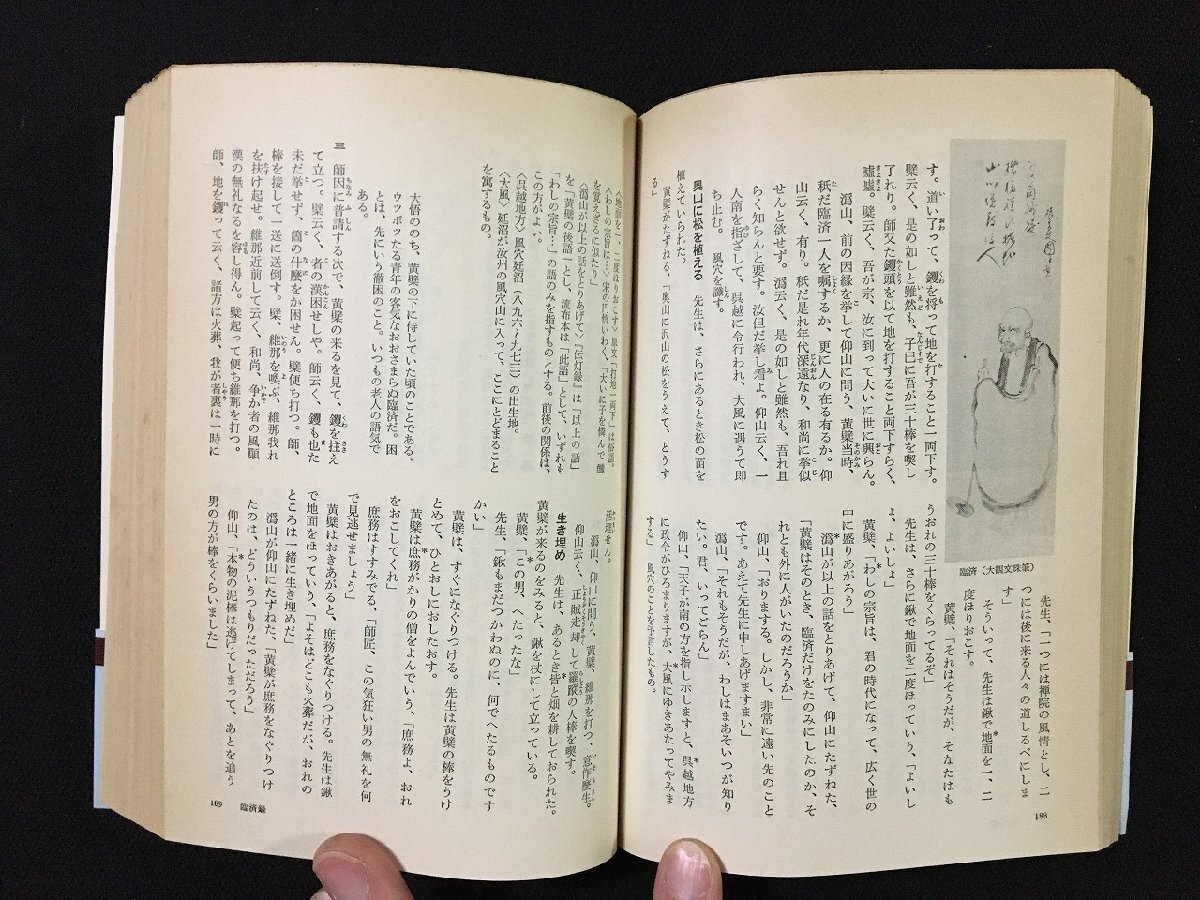 す。道い了って、钁を将って地を打すること一両下す。
檗云く、是の如しと雖然も、子已に吾が三十棒を喫し
了れり。師又た钁頭を以て地を打すること両下すらく、
嘘嘘。檗云く、吾が宗、汝に到って大いに世に興らん。
潙山、前の因縁を挙して仰山に問う、黄檗当時、
秖だ臨済一人を嘱するか、更に人の在る有るか。仰
山云く、有り。秖だ是れ年代深遠なり、和尚に挙似
せんと欲せず。潙云く、是の如しと雖然も、吾れ且
らく知らんと要す。汝但だ挙し看よ。仰山云く、一
人南を指ざして、呉越に令行われ、大風に遇うて即
ち止む。 風穴を讖す。
風口に松を植える 先生は、さらにあるとき松の苗を
植えていられた。
黄檗がたずねる、「奥山に沢山の松をうえて、とうす
る」
臨済（大観文珠筆）
先生、「一つには禅院の風情とし、二
つには後に来る人々の道しるべにしま
す」
そういって、先生は鍬で地面を一、二
度ほりおこす。
黄檗、「それはそうだが、そなたはも
うおれの三十棒をくらってるぞ」
先生は、さらに鍬で地面を二度ほっていう、「よいし
ょ、よいしょ」
黄檗、「わしの宗旨は、君の時代になって、広く世の
中に盛りあがろう」
潙山が以上の話をとりあげて、仰山にたずねた、
「黄檗はそのとき、臨済だけをたのみにしたのか、そ
れとも外に人がいたのだろうか」
仰山、「おりまする。しかし、非常に遠い先のこと
です。あえて先生に申しあげますまい」
潙山、「それもそうだが、わしはまあそいつが知り
たい。君、いってごらん」
仰山、「天子が南の方を指し示しますと、呉越地方
に政令がひろまりますが、大風にゆきあたってやみま
する」 風穴のことを予言したもの。
188
〈地面を一、二度ほりおこす〉原文「打地一両下」は俗語。
を覚えざるに似たり」
〈潙山が以上の話をとりあげて〉『伝灯録』は「以上の話」
を「黄檗の後語」とし、流布本は「此語」として、いずれも
「わしの宗旨…」の語のみを指すものとする。前後の関係は、
この方がよい。
〈呉越地方〉風穴延沼（八九六―九七三）の出生地。
〈大風〉延沼が汝州の風穴山に入って、ここにとどまること
を寓するもの。
大悟ののち、黄檗の下に侍していた頃のことである、
ウッボツたる青年の客気なおおさまらぬ臨済だ。困
とは、先にいう徹困のこと。いつもの老人の語気で
ある。
三 師因に普請する次で、黄檗の来るを見て、钁を拄え
て立つ。檗云く、者の漢困せしや。師云く、钁も也た
未だ挙せず、箇の什麼をか困せん。檗便ち打つ。師、
棒を接して一送に送倒す。檗、維那を喚ぶ、維那我れ
を扶け起せ。維那近前して云く、和尚、争か者の風顚
漢の無礼なるを容し得ん。檗起って便ち維那を打つ。
師、地を钁って云く、諸方は火葬、我が者裏は一時に
活埋せん。
潙山、仰山に問う、黄檗、維那を打つ、意作麼生。
仰山云く、正賊走却して邏蹤の人棒を喫す。
生き埋め 先生は、あるとき皆と畑を耕しておられた。
黄檗が来るのをみると、鍬を杖にして立っている。
黄檗、「この男、へたったな」
先生、「鍬もまだつかわぬのに、何でへたるものです
かい」
黄檗は、すぐになぐりつける。先生は黄檗の棒をうけ
とめて、ひとおしにおしたおす。
黄檗は庶務がかりの僧をよんでいう、「庶務よ、おれ
をおこしてくれ」
庶務はすすみでる、「師匠、この気狂い男の無礼を何
で見逃せましょう」
黄檗はおきあがると、庶務をなぐりつける。先生は鍬
で地面をほっていう、「よそはどこも火葬だが、おれの
ところは一緒に生き埋めだ」
潙山が仰山にたずねた、「黄檗が庶務をなぐりつけ
たのは、どういうつもりだっただろう」
仰山、「本物の泥棒は逃げてしまって、あとを追う
男の方が棒をくらいました」
189 臨済録